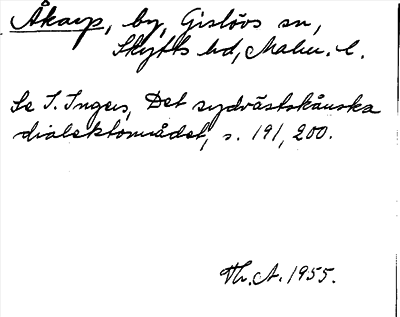 Åkarp, by, Gislövs sn,
Skytts hd, Malm. l.
Se I. Ingers, Det sydvästskånska
dialektområdet, s. 191, 200.
Th. A. 1955.